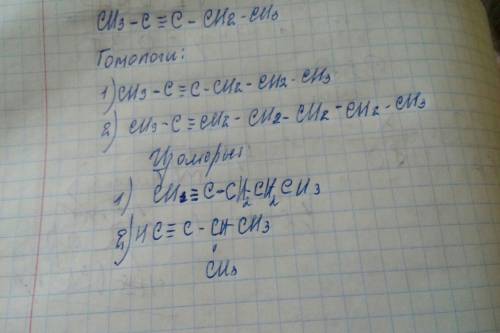 CH3-C≡C-CH2-CH3
Гомологи:
1) CH3-C≡C-CH2-CH2-CH3
2) CH3-C≡CH2-CH2-CH2-CH2-CH3
Изомеры
1) CH≡C-CH2CH2CH3
2) HC≡C-CHCH3
CH3